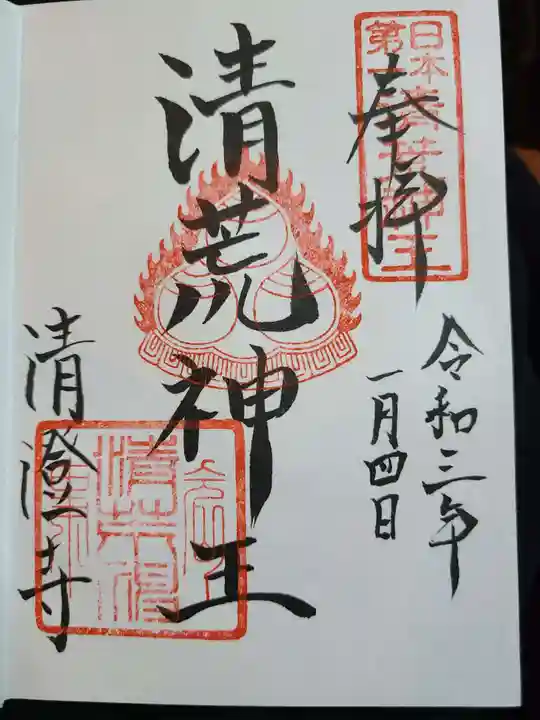 奉拝
日本清荒神王
第一
令和三年
一月四日
清荒神王
清澄寺